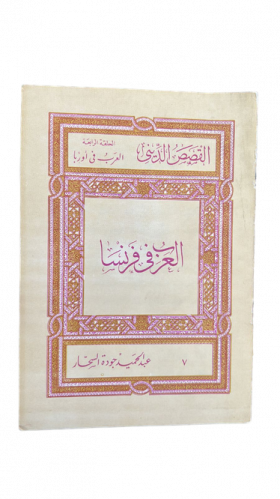 القصص الديني
الحلقة الرابعة
العرب في أوربا
العرب في فرنسا
عبد الحميد جودة السحار
٧